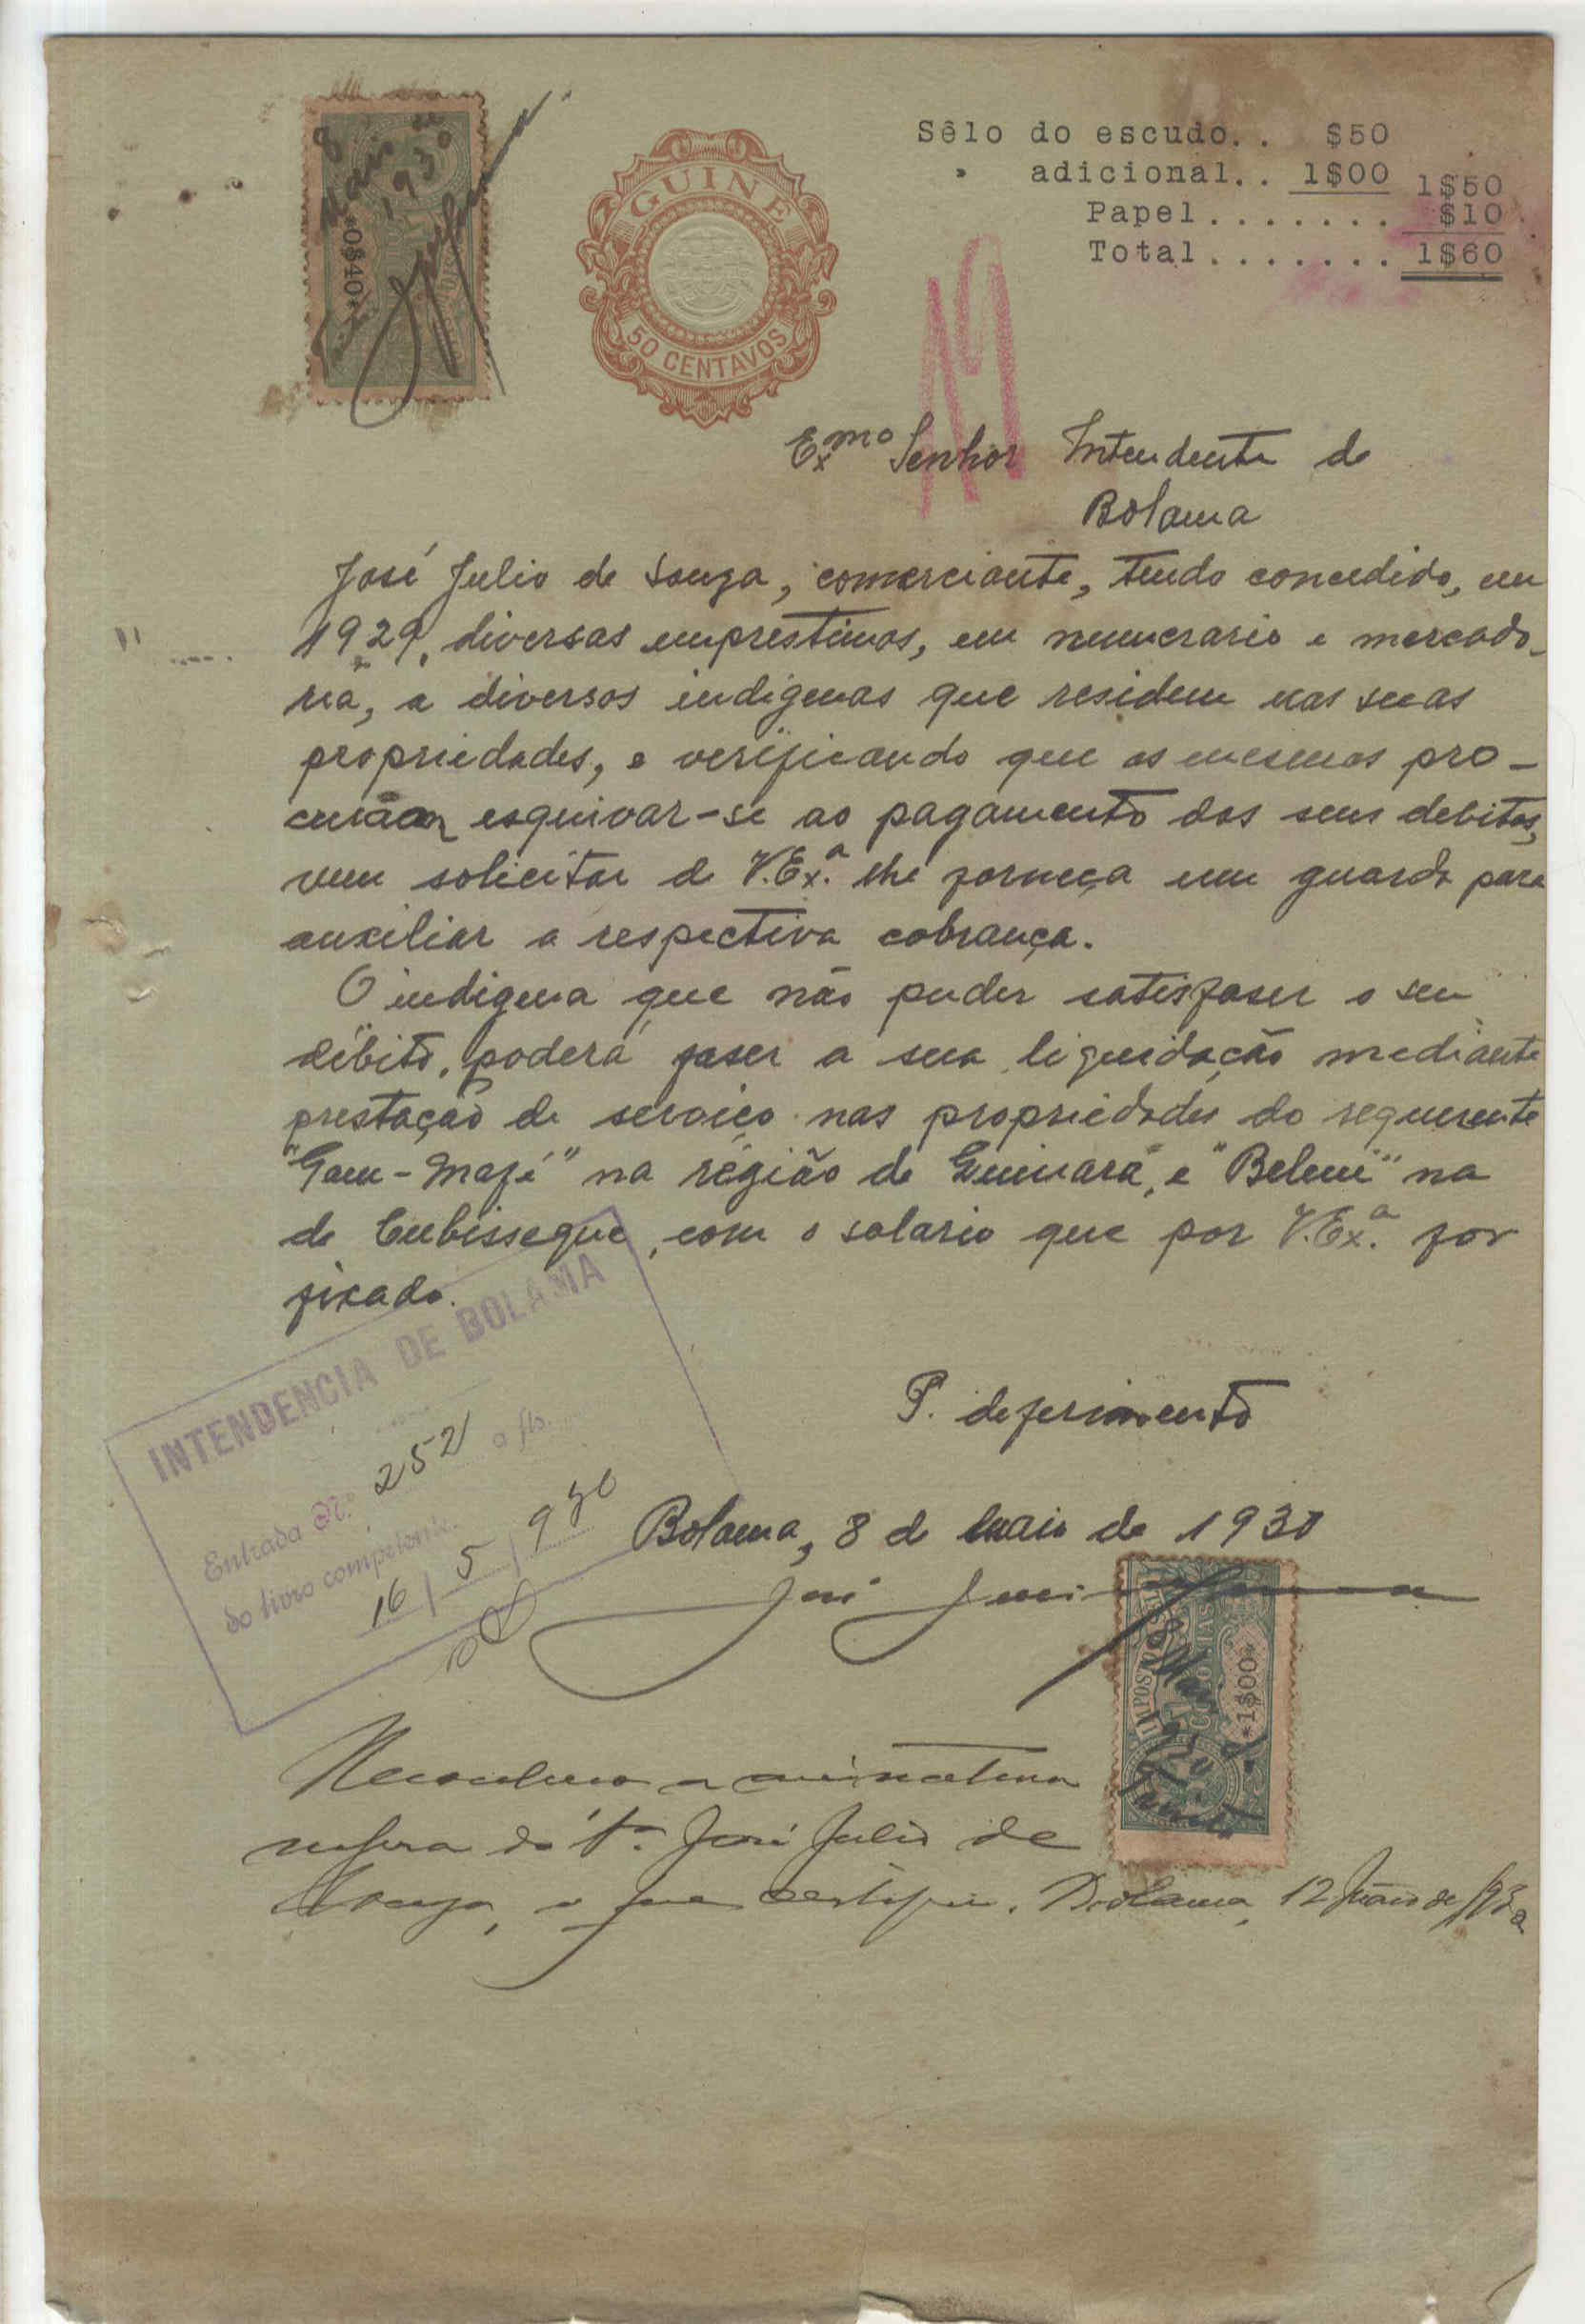 Sêlo do escudo.. $50
" adicional.. 1$00 1$50
Papel....... $10
Total....... 1$60
GUINÉ
50 CENTAVOS
*0$40*
8 Maio 1930
Exmo Senhor Intendente de
Bolama
José Julio de Souza, comerciante, tendo concedido, em
1929, diversos emprestimos, em numerario e mercado-
ria, a diversos indigenas que residem nas suas
propriedades, e verificando que os mesmos pro-
curam esquivar-se ao pagamento dos seus debitos,
vem solicitar de V.Ex.ª lhe forneça um guarda para
auxiliar a respectiva cobrança.
O indigena que não puder satisfaser o seu
débito, poderá faser a sua liquidação mediante
prestação de serviço nas propriedades do requerente
"Gam-Mafé" na região de Guinara, e "Belem" na
de Cubisseque, com o salario que por V.Ex.ª for
fixado.
P. deferimento
Bolama, 8 de maio de 1930
José Julio Souza
INTENDENCIA DE BOLAMA
Entrada N.º 252 a fls.
do livro competente.
16 / 5 / 930
IMPOSTO DO SELO
COLONIAS
*1$00*
Reconheço a assinatura
supra do Sr. José Julio de
Souza, o que certifico. Bolama, 12 Maio de 1930